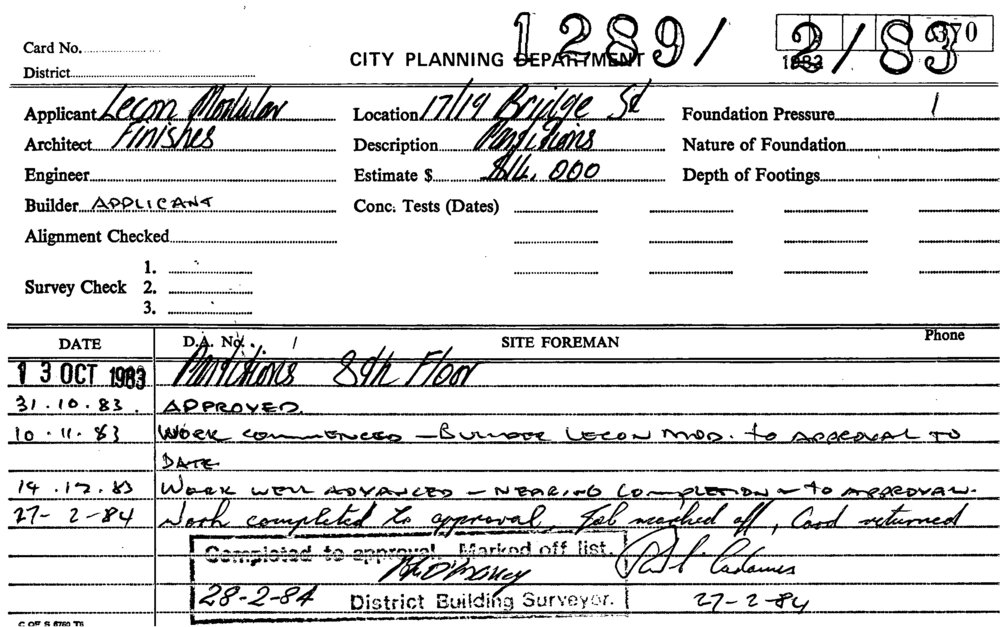 1289/ 2/83
Card No.
CITY PLANNING DEPARTMENT
District
Applicant Lecon Modular Location 17/19 Bridge St Foundation Pressure
Architect Finishes Description Partitions Nature of Foundation
Engineer Estimate $ $14,000 Depth of Footings
Builder APPLICANT Conc. Tests (Dates)
Alignment Checked
1.
Survey Check 2.
3.
DATE D.A. No. SITE FOREMAN Phone
13 OCT 1983 Partitions 8th Floor
31.10.83. APPROVED.
10.11.83 WORK COMMENCED - BUILDER LECON MOD. TO APPROVAL TO
DATE
14.12.83 WORK WELL ADVANCED - NEARING COMPLETION - TO APPROVAL.
27-2-84 Work completed to approval, Job marked off, Card returned
Completed to approval. Marked off list.
28-2-84 District Building Surveyor. 27-2-84
C OF S 6760 TS